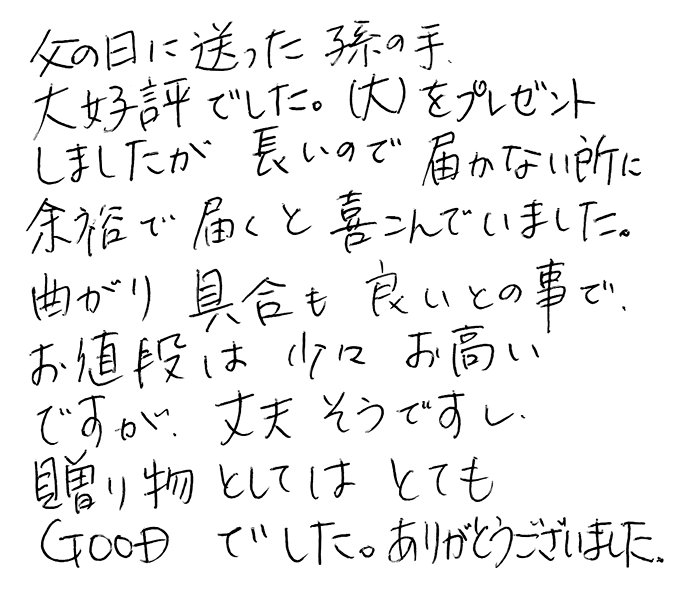 父の日に送った孫の手、
大好評でした。(大)をプレゼント
しましたが 長いので届かない所に
余裕で届くと喜こんでいました。
曲がり具合も良いとの事で、
お値段は少々お高い
ですが、丈夫そうですし、
贈り物としてはとても
GOODでした。ありがとうございました。